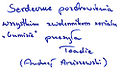 Serdeczne pozdrowienia
wszystkim zwolennikom serialu
"Gumisie" przesyła
Toadie
(Andrzej Arciszewski)